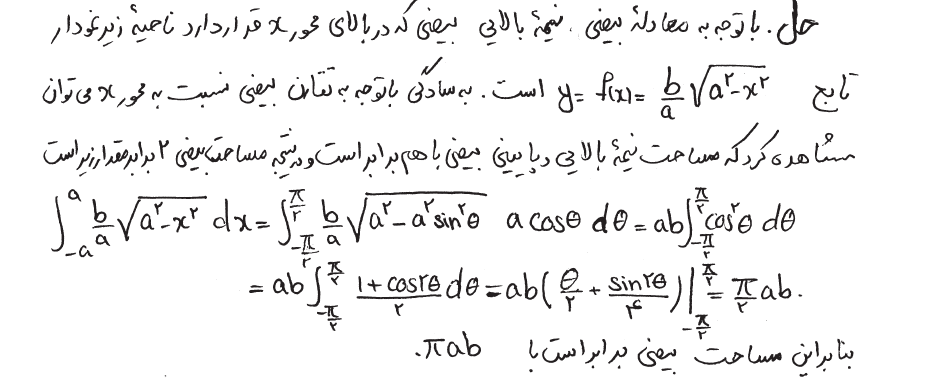 حل. با توجه به معادلهٔ بیضی، نیمهٔ بالایی بیضی که در بالای محور x قرار دارد ناحیهٔ زیر نمودار
تابع y = f(x) = b/a √(a^۲ - x^۲) است. به سادگی با توجه به تقارن بیضی نسبت به محور x می توان
مشاهده کرد که مساحت نیمهٔ بالایی و پایینی بیضی با هم برابر است و در نتیجه مساحت بیضی ۲ برابر مقدار زیر است
∫_{-a}^{a} b/a √(a^۲ - x^۲) dx = ∫_{-π/۲}^{π/۲} b/a √(a^۲ - a^۲ sin^۲θ) a cosθ dθ = ab ∫_{-π/۲}^{π/۲} cos^۲θ dθ
= ab ∫_{-π/۲}^{π/۲} (1 + cos۲θ)/۲ dθ = ab(θ/۲ + sin۲θ/۴)|_{-π/۲}^{π/۲} = π/۲ ab.
بنابراین مساحت بیضی برابر است با πab.